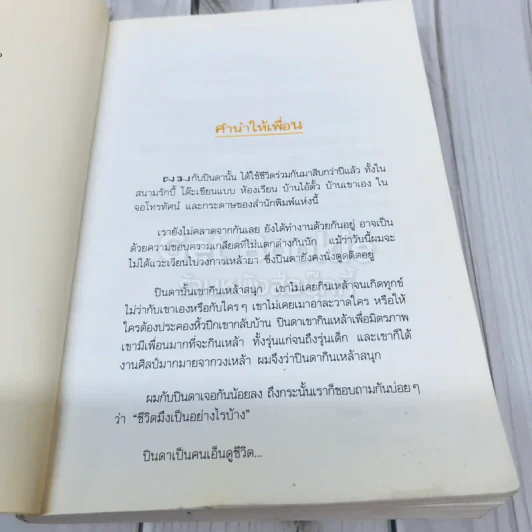 คำนำให้เพื่อน
ผมกับปินดานั้น ได้ใช้ชีวิตร่วมกันมาสิบกว่าปีแล้ว ทั้งใน
สนามรักบี้ โต๊ะเขียนแบบ ห้องเรียน บ้านไอ้ตั้ว บ้านเขาเอง ใน
จอโทรทัศน์ และกระดาษของสำนักพิมพ์แห่งนี้
เรายังไม่คลาดจากกันเลย ยังได้ทำงานด้วยกันอยู่ อาจเป็น
ด้วยความชอบความเกลียดที่ไม่แตกต่างกันนัก แม้ว่าวันนี้ผมจะ
ไม่ได้แวะเวียนไปวงการเหล้ายา ซึ่งปินดายังคงนั่งตูดติดอยู่
ปินดานั้นเขากินเหล้าสนุก เขาไม่เคยกินเหล้าจนเกิดทุกข์
ไม่ว่ากับเขาเองหรือกับใครๆ เขาไม่เคยเมาอาละวาดใคร หรือให้
ใครต้องประคองหิ้วปีกเขากลับบ้าน ปินดาเขากินเหล้าเพื่อมิตรภาพ
เขามีเพื่อนมากที่จะกินเหล้า ทั้งรุ่นแก่จนถึงรุ่นเด็ก และเขาก็ได้
งานศิลป์มากมายจากวงเหล้า ผมจึงว่าปินดากินเหล้าสนุก
ผมกับปินดาเจอกันน้อยลง ถึงกระนั้นเราก็ชอบถามกันบ่อยๆ
ว่า "ชีวิตมึงเป็นอย่างไรบ้าง"
ปินดาเป็นคนเอ็นดูชีวิต...